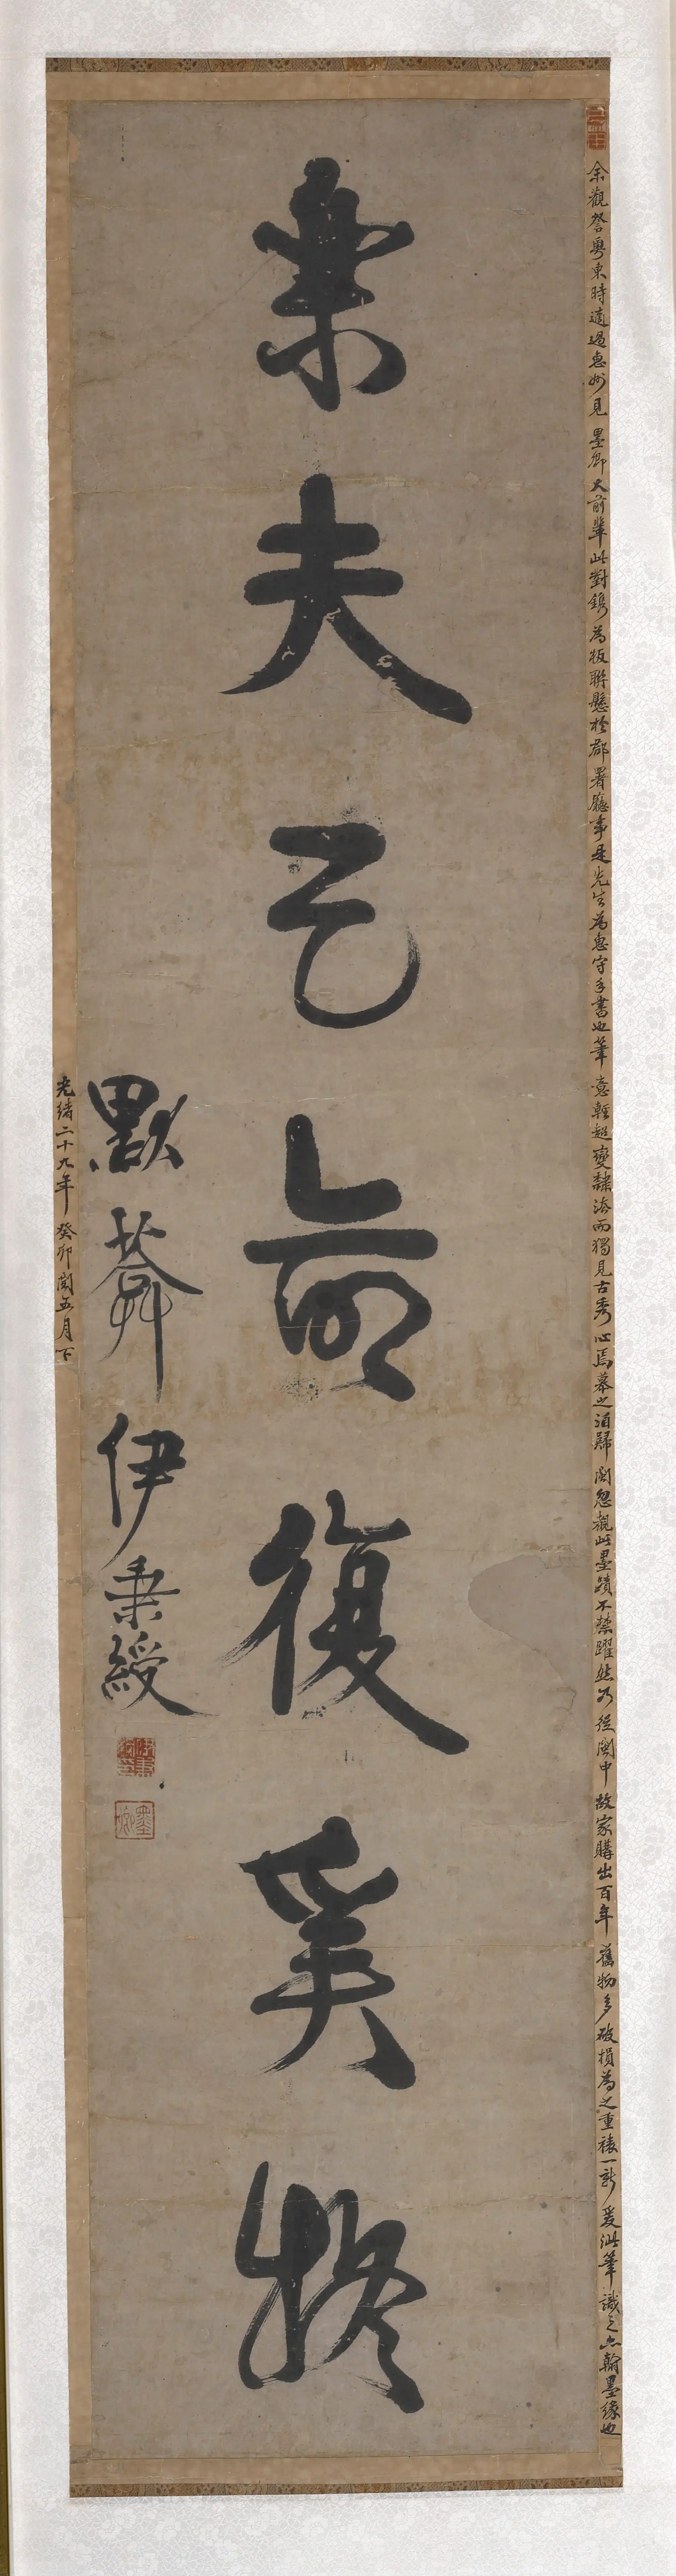 余觀詧粵東時適過惠州見墨卿大前輩此對鐫為板聯懸於郡署廳事是先生為惠守手書也筆意輕超變隸法而獨見古秀心焉慕之洎歸閩忽覯此墨蹟不禁躍然乃從閩中故家購出百年舊物多破損為之重裱一新爰泚筆識之亦翰墨緣也
樂夫天命復奚疑
默葊伊秉綬
墨卿
光緒二十九年癸卯閏五月下